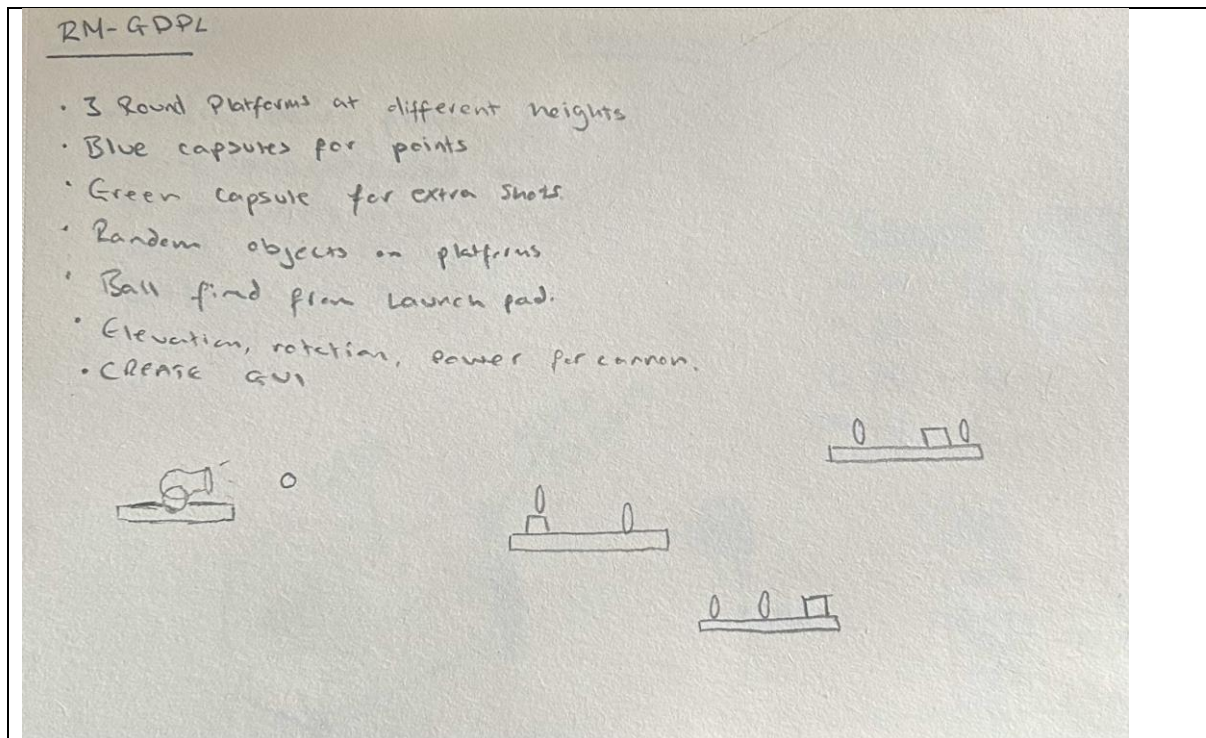 RM-GDPL
• 3 Round Platforms at different heights
• Blue capsules for points
• Green capsule for extra shots.
• Random objects on platforms
• Ball fired from Launch pad.
• Elevation, rotation, power for cannon.
• CREATE GUI